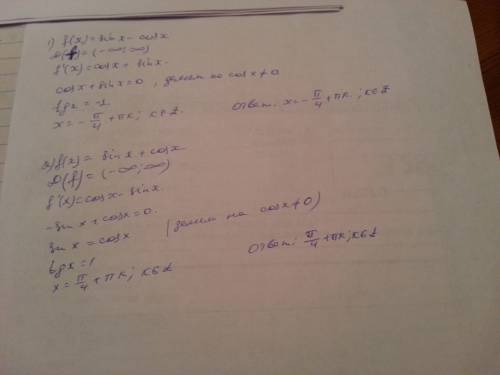 1) f(x) = sin x - cos x
D(f) = (-∞; ∞)
f'(x) = cos x + sin x.
cos x + sin x = 0, делим на cos x ≠ 0
tg x = -1
x = -π/4 + πk; k ∈ Z. Ответ: x = -π/4 + πk; k ∈ Z
2) f(x) = sin x + cos x
D(f) = (-∞; ∞)
f'(x) = cos x - sin x.
-sin x + cos x = 0.
sin x = cos x | делим на cos x ≠ 0)
tg x = 1
x = π/4 + πk; k ∈ Z Ответ: π/4 + πk; k ∈ Z